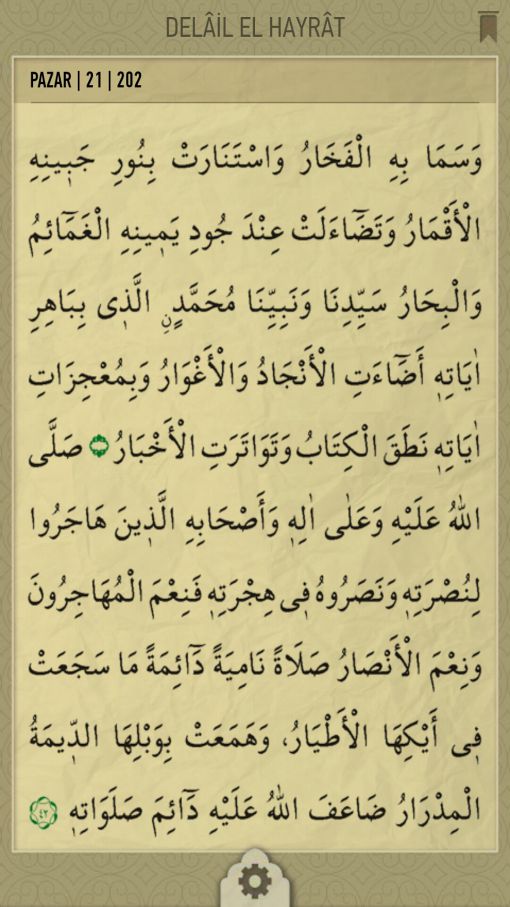 DELÂİL EL HAYRÂT
PAZAR | 21 | 202
وَسَمَا بِهِ الْفَخَارُ وَاسْتَنَارَتْ بِنُورِ جَبٖينِهِ
الْأَقْمَارُ وَتَضَٓاءَلَتْ عِنْدَ جُودِ يَمٖينِهِ الْغَمَٓائِمُ
وَالْبِحَارُ سَيِّدِنَا وَنَبِيِّنَا مُحَمَّدٍنِ الَّذٖى بِبَاهِرِ
اٰيَاتِهٖ أَضَٓاءَتِ الْأَنْجَادُ وَالْأَغْوَارُ وَبِمُعْجِزَاتِ
اٰيَاتِهٖ نَطَقَ الْكِتَابُ وَتَوَاتَرَتِ الْأَخْبَارُ صَلَّى
اللهُ عَلَيْهِ وَعَلٰى اٰلِهٖ وَأَصْحَابِهِ الَّذٖينَ هَاجَرُوا
لِنُصْرَتِهٖ وَنَصَرُوهُ فٖى هِجْرَتِهٖ فَنِعْمَ الْمُهَاجِرُونَ
وَنِعْمَ الْأَنْصَارُ صَلَاةً نَامِيَةً دَٓائِمَةً مَا سَجَعَتْ
فٖى أَيْكِهَا الْأَطْيَارُ، وَهَمَعَتْ بِوَبْلِهَا الدّٖيمَةُ
الْمِدْرَارُ ضَاعَفَ اللهُ عَلَيْهِ دَٓائِمَ صَلَوَاتِهٖ ٤٢